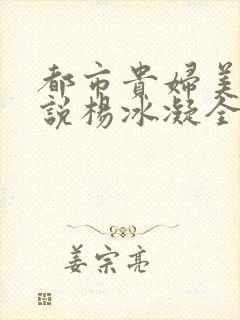 都市貴婦美
說楊冰凝全
姜宗亮